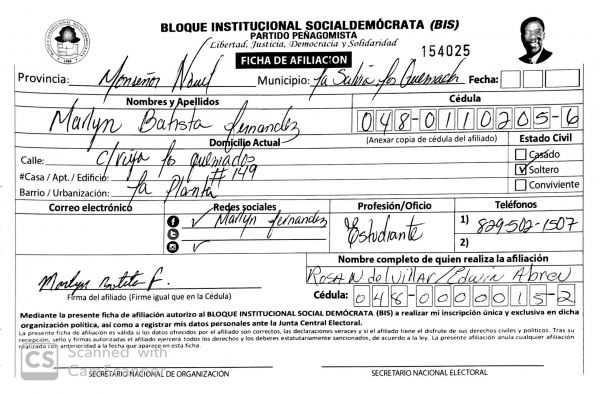 BLOQUE INSTITUCIONAL SOCIALDEMÓCRATA (BIS)
PARTIDO PEÑAGOMISTA
Libertad, Justicia, Democracia y Solidaridad
154025
FICHA DE AFILIACION
Provincia: Monseñor Nouel Municipio: La Salvia los Quemados Fecha:
Nombres y Apellidos
Cédula
Marlyn Batista fernandez
048-0110205-6
(Anexar copia de cédula del afiliado)
Domicilio Actual
Estado Civil
Calle: C/ vieja los quemados
Casado
#Casa / Apt. / Edificio: #149
Soltero
Barrio / Urbanización: La Planta
Conviviente
Correo electrónico
Redes sociales
Profesión/Oficio
Teléfonos
Marlyn fernandez
Estudiante
1) 829-502-1507
2)
Nombre completo de quien realiza la afiliación
Rosa N del Villar/Edwin Abreu
Marlyn Batista F.
Firma del afiliado (Firme igual que en la Cédula)
Cédula: 048-0000015-2
Mediante la presente ficha de afiliación autorizo al BLOQUE INSTITUCIONAL SOCIAL DEMÓCRATA (BIS) a realizar mi inscripción única y exclusiva en dicha
organización política, así como a registrar mis datos personales ante la Junta Central Electoral.
La presente ficha de afiliación es válida si los datos ofrecidos por el afiliado son correctos, las declaraciones veraces y si el afiliado tiene el disfrute de sus derechos civiles y políticos. Tras su
recepción, sello y firmas autorizadas el afiliado ejercerá todos los derechos y los deberes estatutariamente sancionados, de acuerdo a la ley. La presente afiliación anula cualquier afiliación
realizada con anterioridad a la fecha que aparece en esta ficha.
CS Scanned with
CamScanner
SECRETARIO NACIONAL DE ORGANIZACIÓN
SECRETARIO NACIONAL ELECTORAL